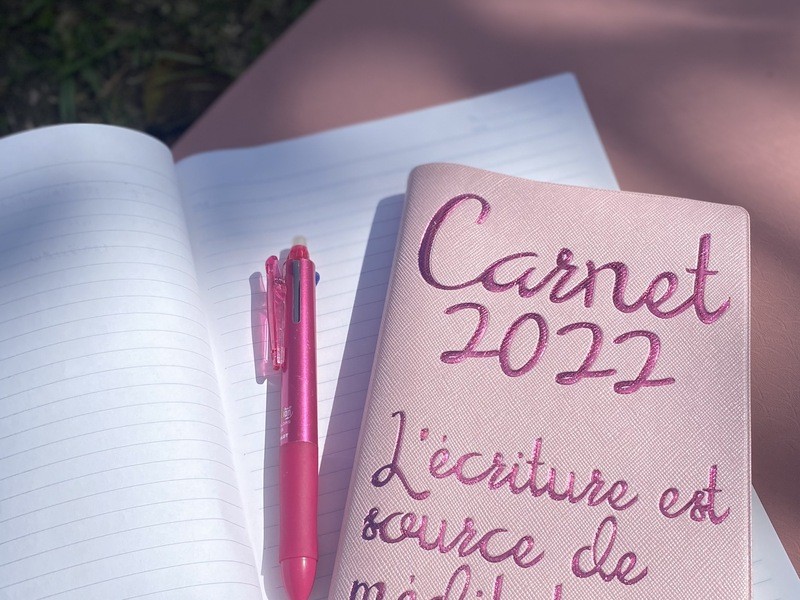 Carnet
2022
L'écriture est
source de